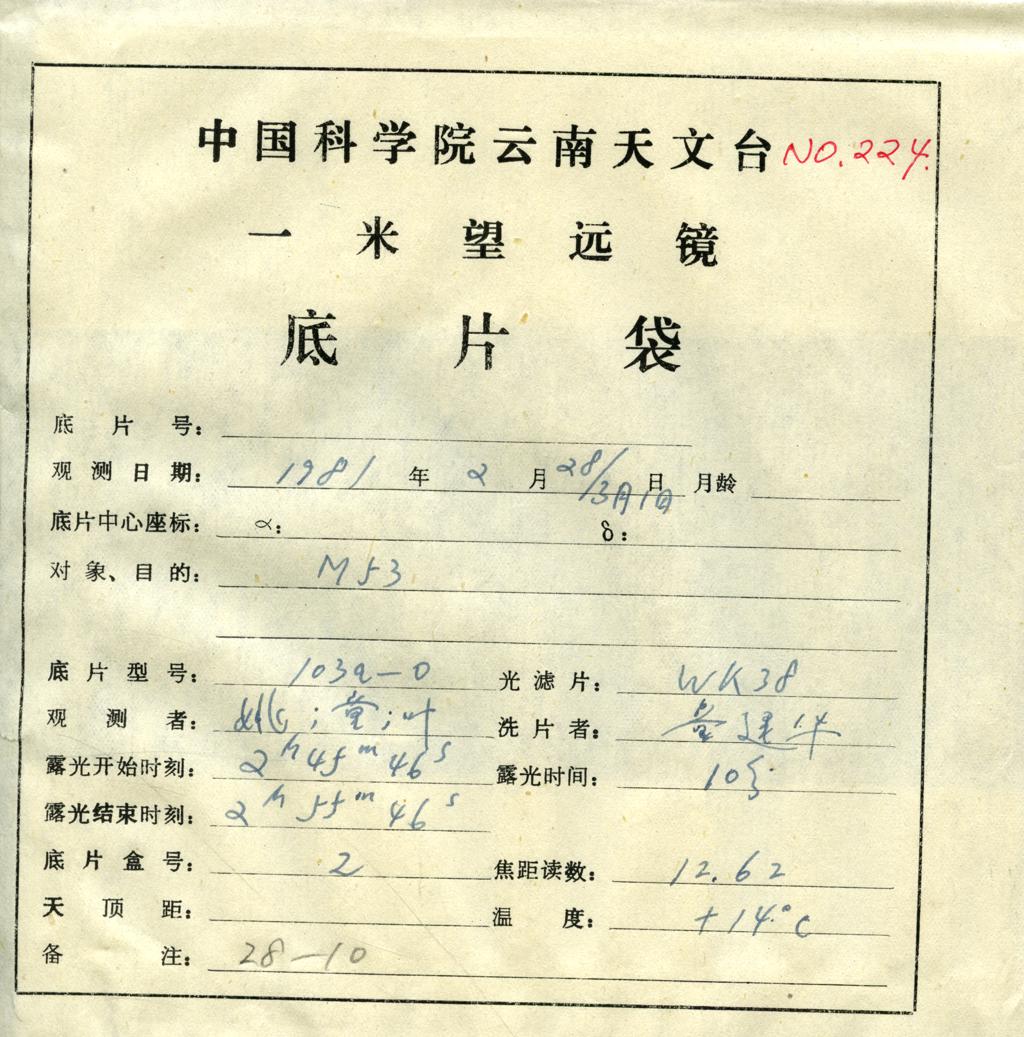 中国科学院云南天文台 NO.224.
一米望远镜
底片袋
底片号：
观测日期： 1981 年 2 月 28/3月1日 日 月龄
底片中心座标： α： δ：
对象、目的： M53
底片型号： 103a-O 光滤片： WK38
观测者： ；堂；叶 洗片者： 堂建华
露光开始时刻： 2h45m46s 露光时间： 10分
露光结束时刻： 2h55m46s
底片盒号： 2 焦距读数： 12.62
天顶距： 温度： +14°C
备注： 28-10